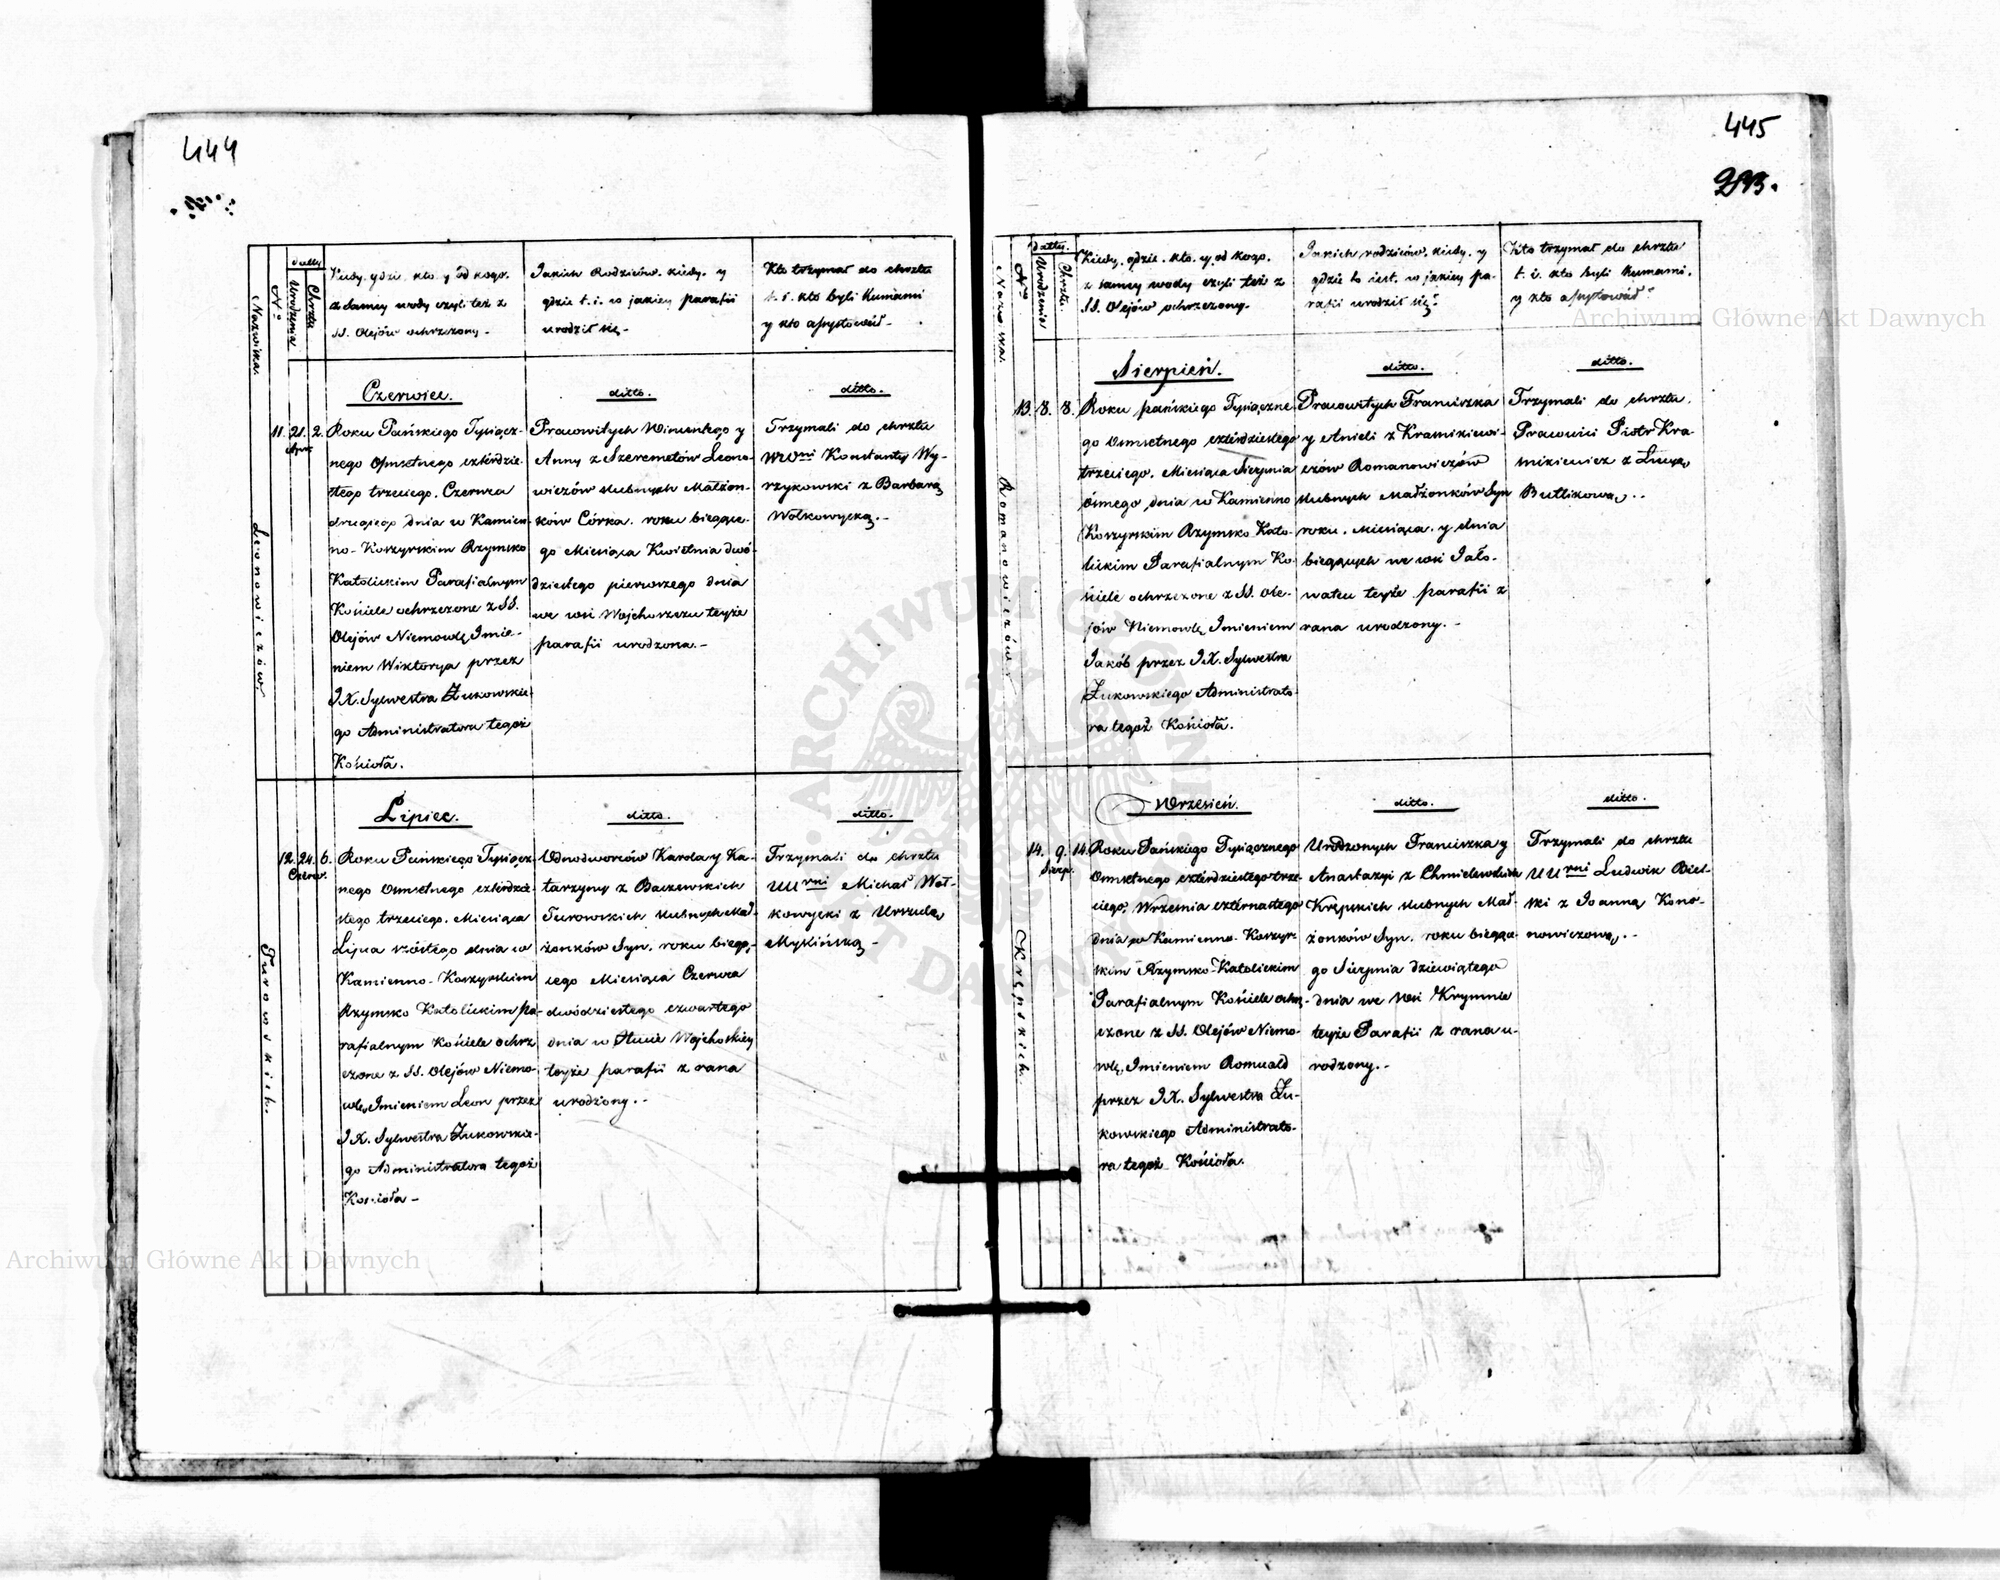 444
Nazwiska.
N<sup>o</sup>
datty
Urodzenia
Chrztu
Kiedy. gdzie. kto. y od kogo.
z samey wody czyli też z
SS. Olejów ochrzczony.-
Jakich Rodziców. kiedy. y
gdzie t. i. w jakiey parafii
urodził się.-
Kto trzymał do chrztu
t. i. kto byli Kumami
y kto assystował.-
Leonowiczów.
Czerwiec.
ditto.
ditto.
11. 21. 2.
Apr.
Roku Pańskiego Tysiącz-
nego Osmsetnego czterdzie-
stego trzeciego. Czerwca
drugiego dnia w Kamien-
no-Koszyrskim Rzymsko
Katolickim Parafialnym
Kościele ochrzczone z SS.
Olejów Niemowlę Imie-
niem Wiktorya przez
J X. Sylwestra Żukowskie-
go Administratora tegoż
Kościoła.
Pracowitych Wincentego y
Anny z Szeremetów Leono-
wiczów slubnych Małżon-
ków Córka. roku bieżące-
go Miesiąca Kwietnia dwó-
dziestego pierwszego dnia
we wsi Wojchorzczu teyże
parafii urodzona.-
Trzymali do chrztu
WW<sup>rni</sup> Konstanty Wy-
rzykowski z Barbarą
Wołkowycką.-
Turowskich.
Lipiec.
ditto.
ditto.
12. 24. 6.
Czerw.
Roku Pańskiego Tysiącz-
nego Osmsetnego czterdzie-
stego trzeciego. Miesiąca
Lipca szóstego dnia w
Kamienno-Koszyrskim
Rzymsko Katolickim Pa-
rafialnym Kościele ochrz
czone z SS. Olejów Niemo-
wlę, Imieniem Leon przez
J X. Sylwestra Żukowskie-
go Administratora tegoż
Kościoła-
Odnodworców Karola y Ka-
tarzyny z Baczewskich
Turowskich slubnych Mał-
żonków Syn. roku bieżą-
cego Miesiąca Czerwca
dwódziestego czwartego
dnia w Hucie Wojchoskiey
teyże parafii z rana
urodzony.-
Trzymali do chrztu
UU<sup>rni</sup> Michał Woł-
kowycki z Urszulą
Mykińską-
445
Nazwiska.
N<sup>o</sup>
datty.
Urodzenia
Chrztu.
Kiedy. gdzie. kto. y. od kogo.
z samey wody czyli też z
SS. Olejów ochrzczony.
Jakich rodziców. kiedy. y
gdzie to iest. w jakiey pa-
rafii urodził się.
Kto trzymał do chrztu
t. i. kto byli Kumami.
y kto assystował
Romanowiczów.
Sierpień.
ditto.
ditto.
13. 8. 8.
Roku pańskiego Tysiączne
go Osmsetnego czterdziestego
trzeciego. Miesiąca Sierpnia
ósmego dnia w Kamienno
Koszyrskim Rzymsko Kato-
lickim Parafialnym Ko-
ściele ochrzczone z SS. Ole-
jów Niemowlę Imieniem
Jakób przez J X. Sylwestra
Żukowskiego Administrato-
ra tegoż Kościoła.
Pracowitych Franciszka
y Anieli z Kramikiewi-
czów Romanowiczów
slubnych Małżonków Syn
roku. Miesiąca. y dnia
bieżących we wsi Jało-
wacu teyże parafii z
rana urodzony.-
Trzymali do chrztu.
Pracowici Piotr Kra-
mikiewicz z Łucyą
Butlikową.-
Krępskich.
Wrzesień.
ditto.
ditto.
14. 9. 14.
Sierp.
Roku Pańskiego Tysiącznego
Osmsetnego czterdziestego trze-
ciego. Września czternastego
dnia w Kamienno-Koszyr-
skim Rzymsko-Katolickim
Parafialnym Kościele ochrz-
czone z SS. Olejów Niemo-
wlę, Imieniem Romuald
przez J X. Sylwestra Żu-
kowskiego Administrato-
ra tegoż Kościoła.
Urodzonych Franciszka y
Anastazyi z Chmielewskich
Krępskich slubnych Mał-
żonków Syn. roku bieżące-
go Sierpnia dziewiątego
dnia we Wsi Krymnie
teyże Parafii z rana u-
rodzony.-
Trzymali do chrztu
UU<sup>rni</sup> Ludwik Biel-
ski z Joanną Kono-
nowiczową.-
Archiwum Główne Akt Dawnych
Archiwum Główne Akt Dawnych